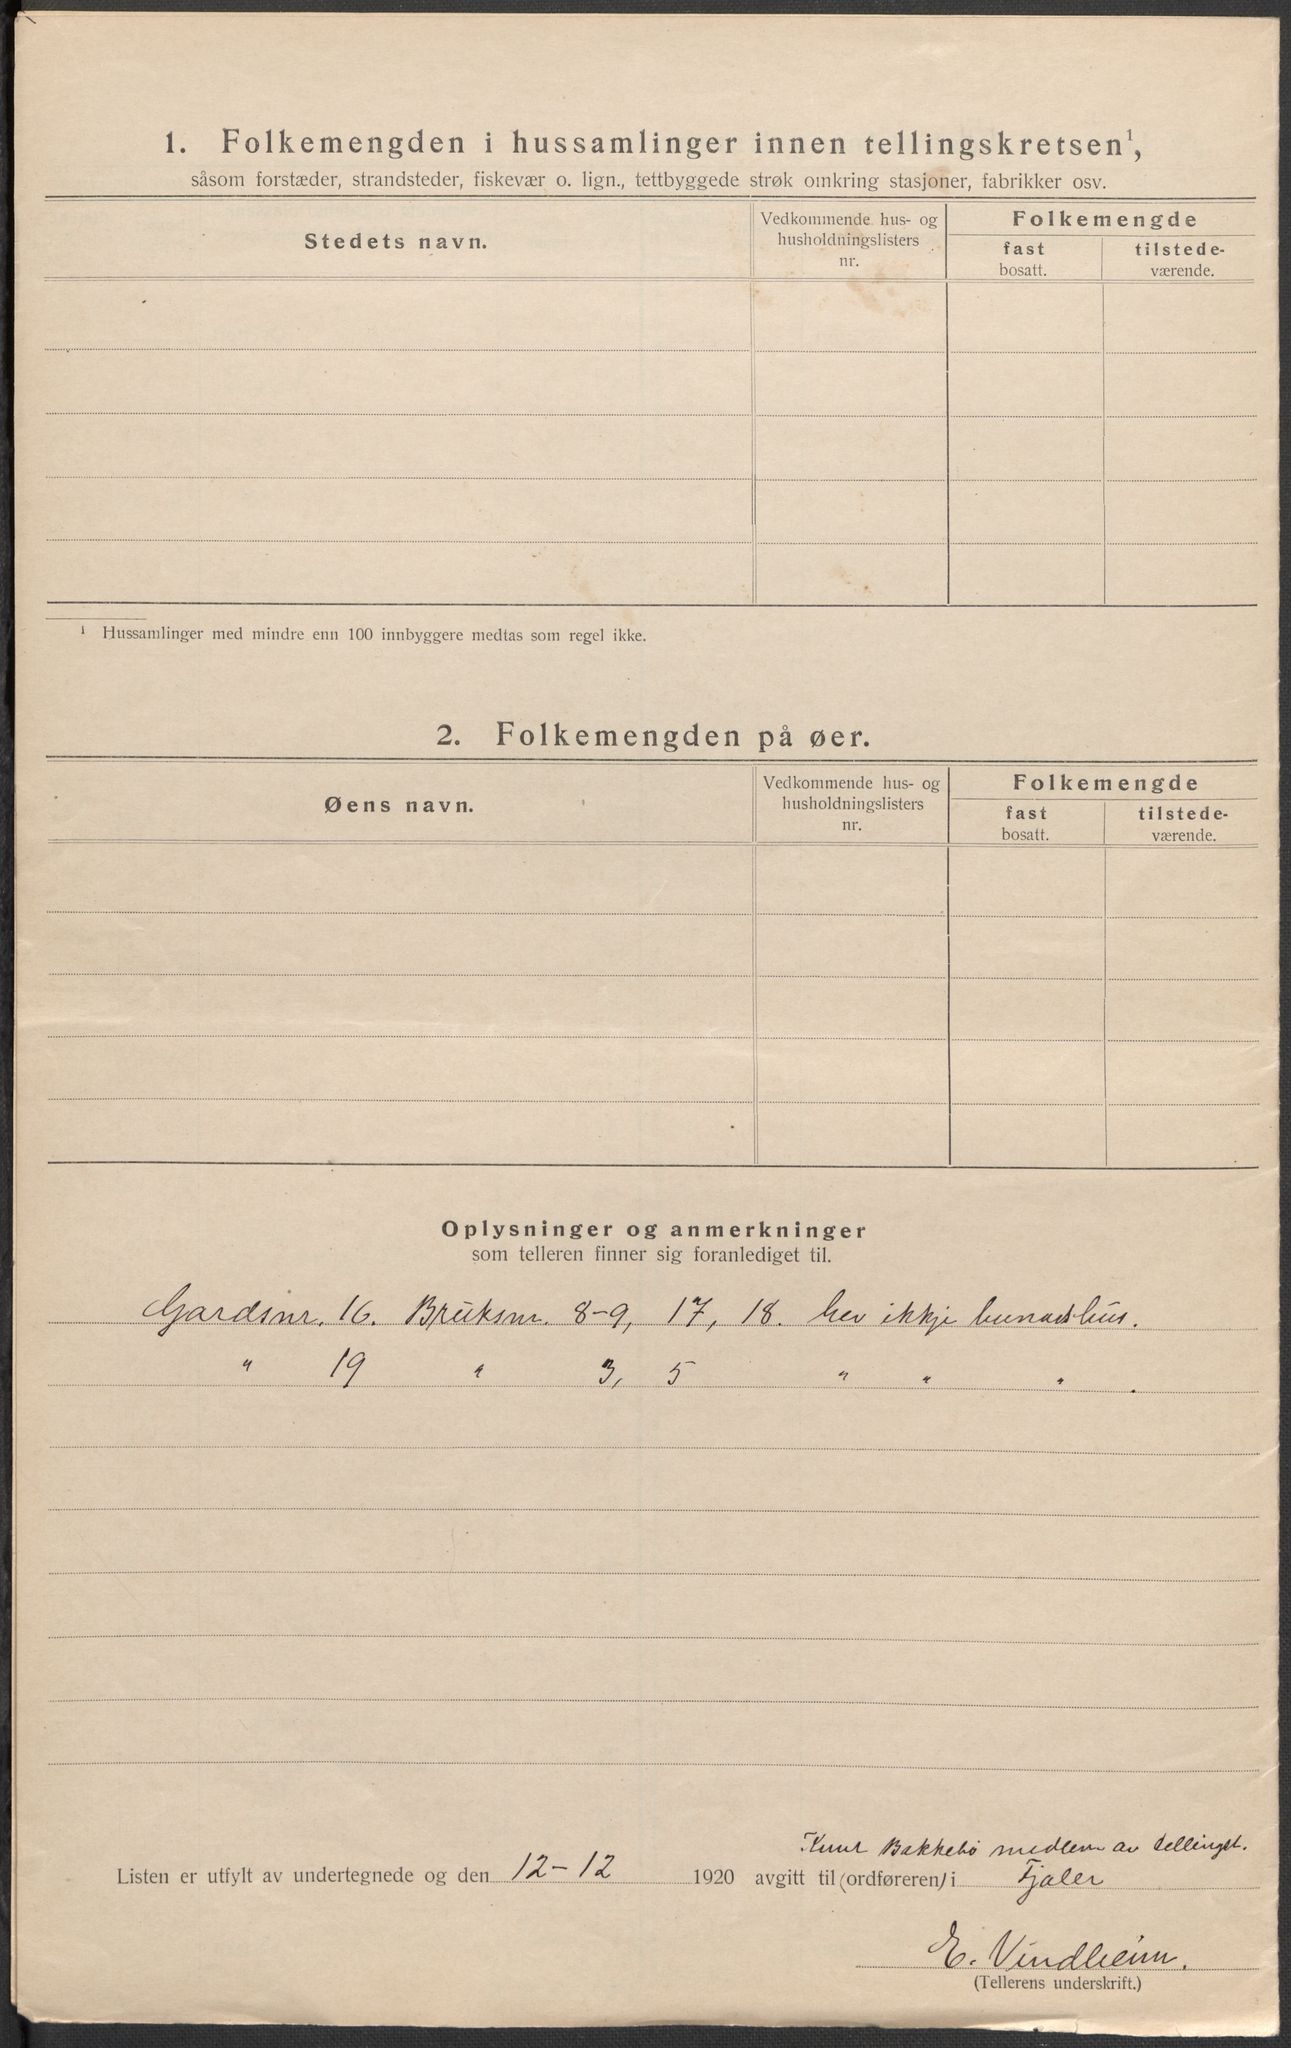 1. Folkemengden i hussamlinger innen tellingskretsen¹,
såsom forstæder, strandsteder, fiskevær o. lign., tettbyggede strøk omkring stasjoner, fabrikker osv.
Stedets navn.
Vedkommende hus- og
husholdningslisters
nr.
Folkemengde
fast
bosatt.
tilstede-
værende.
¹ Hussamlinger med mindre enn 100 innbyggere medtas som regel ikke.
2. Folkemengden på øer.
Øens navn.
Vedkommende hus- og
husholdningslisters
nr.
Folkemengde
fast
bosatt.
tilstede-
værende.
Oplysninger og anmerkninger
som telleren finner sig foranlediget til.
Gardsnr. 16. Bruksnr. 8-9, 17, 18. hev ikkje bunadshus.
" 19 " 3, 5 " " " .
Knut Bakkebø medlem av tellingst.
Listen er utfylt av undertegnede og den 12-12 1920 avgitt til (ordføreren) i Fjaler
E. Vindheim.
(Tellerens underskrift.)